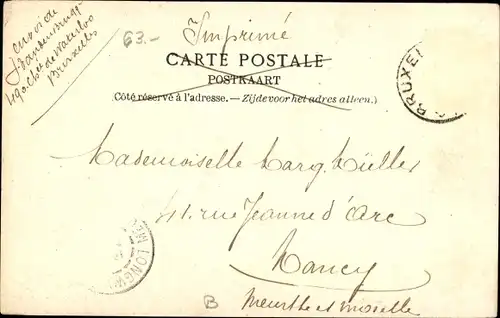 envoi de
49 ch.ée de Waterloo
Bruxelles
63.-
Imprimé
CARTE POSTALE
POSTKAART
(Côté réservé à l'adresse.—Zijde voor het adres alleen.)
BRUXEL
Mademoiselle Marg.
41. rue Jeanne d'Arc
Nancy
Meurthe et Moselle
LONGW
B